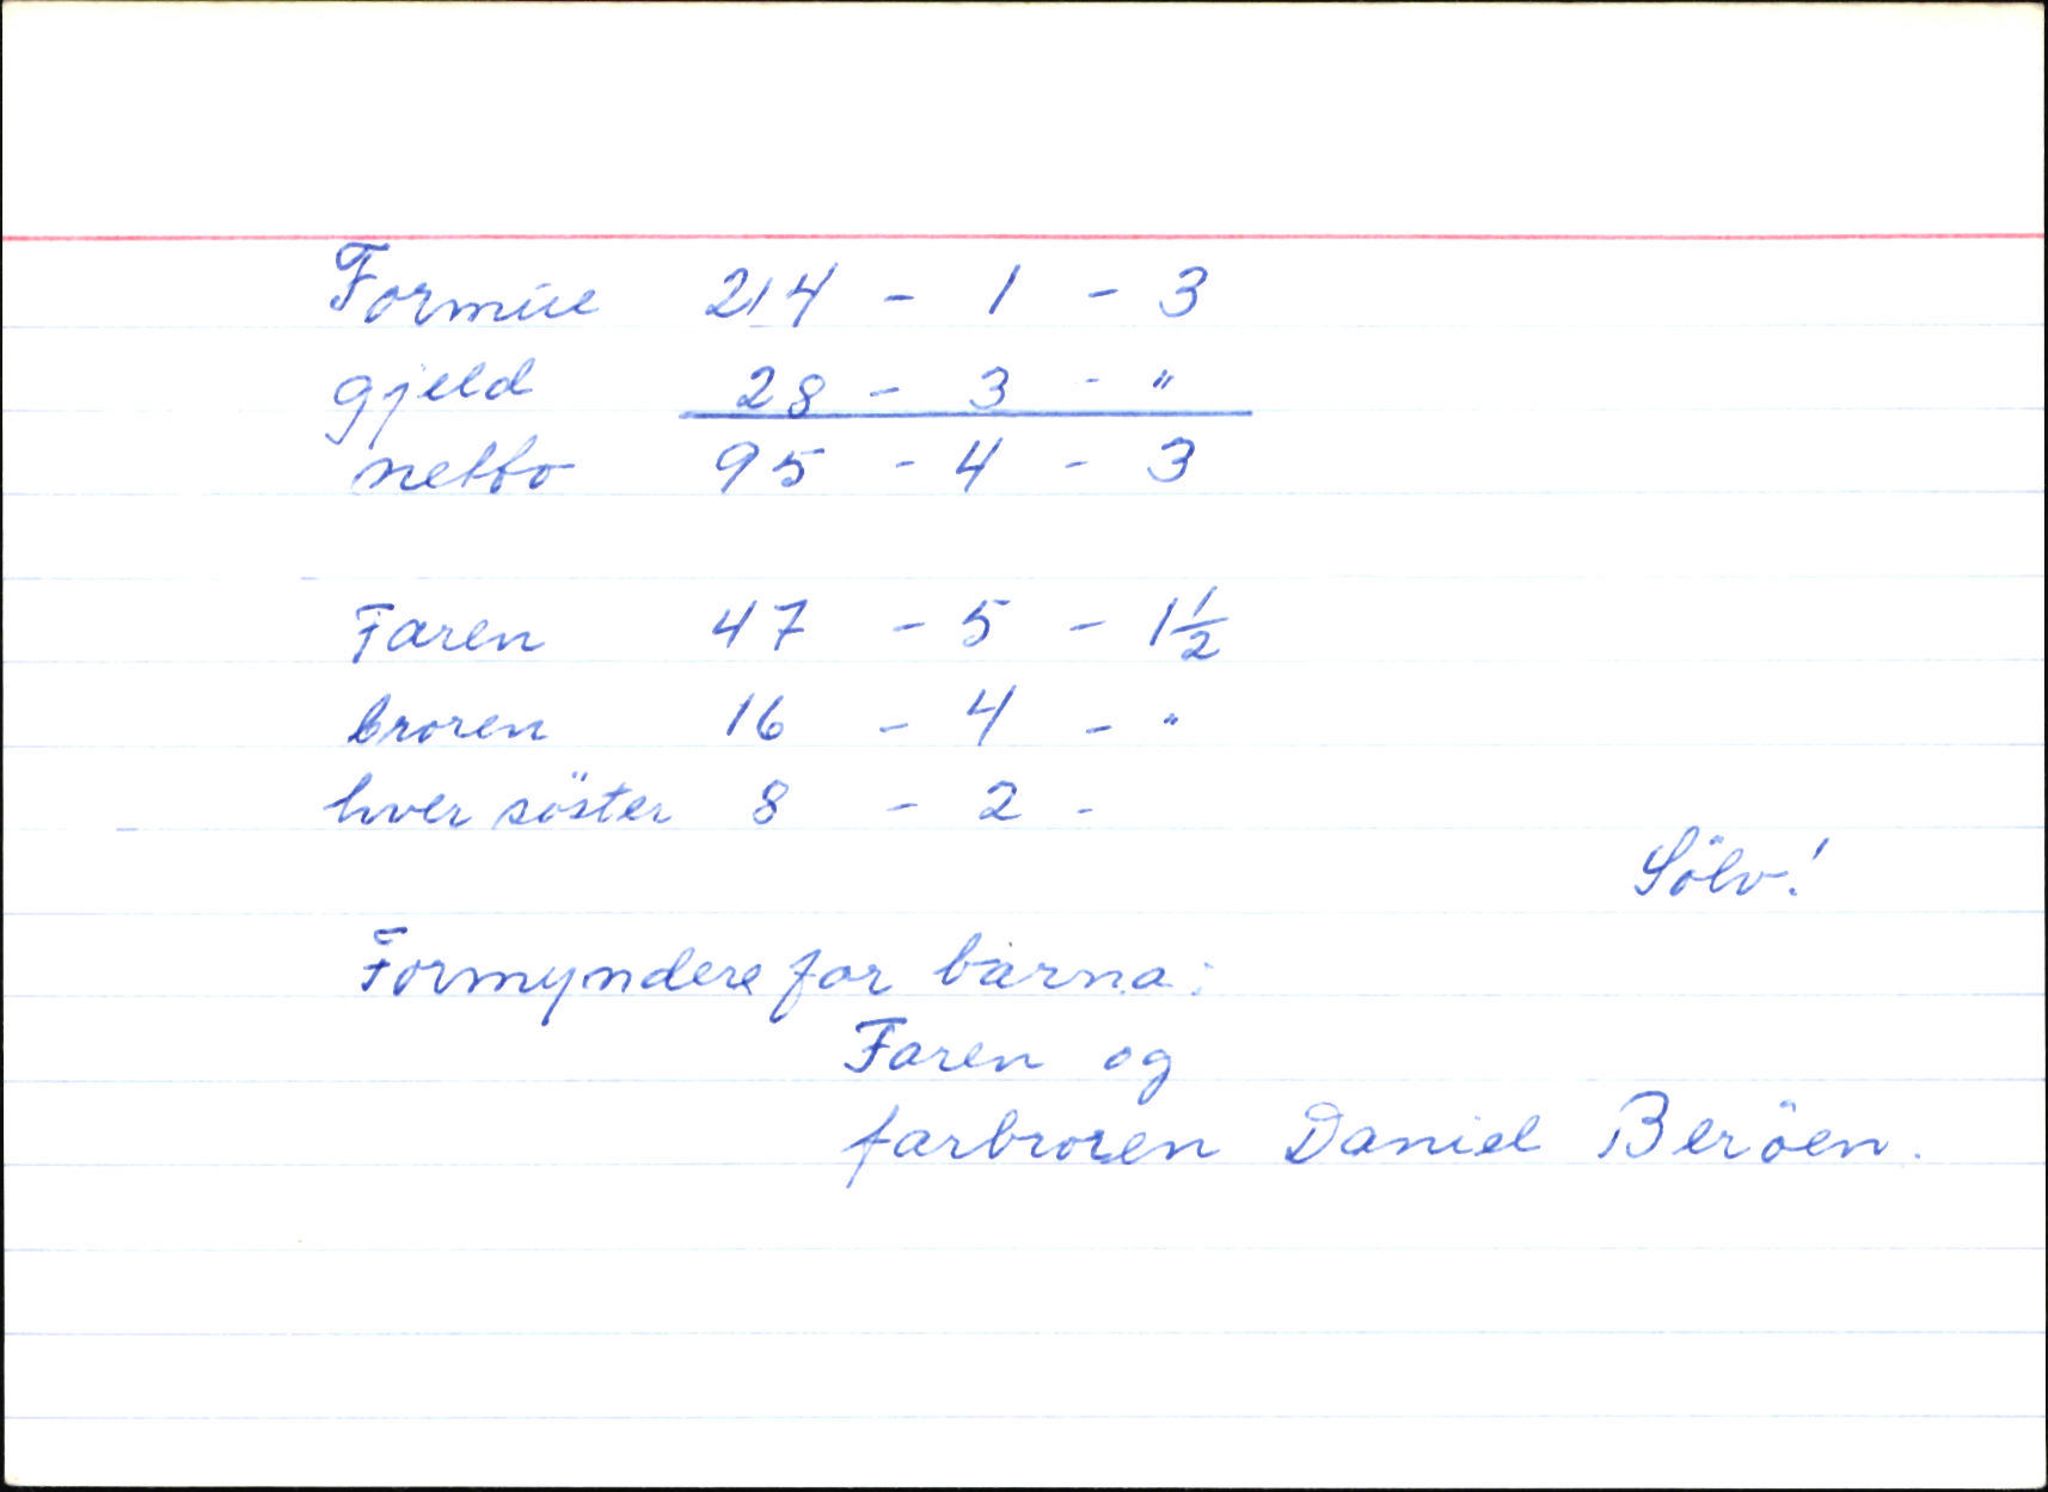 Formue 214 - 1 - 3
gjeld 28 - 3 - "
netto 95 - 4 - 3
Faren 47 - 5 - 1 1/2
broren 16 - 4 - "
hver söster 8 - 2 -
Sölv!
Formyndere for barna:
Faren og
farbroren Daniel Beröen.